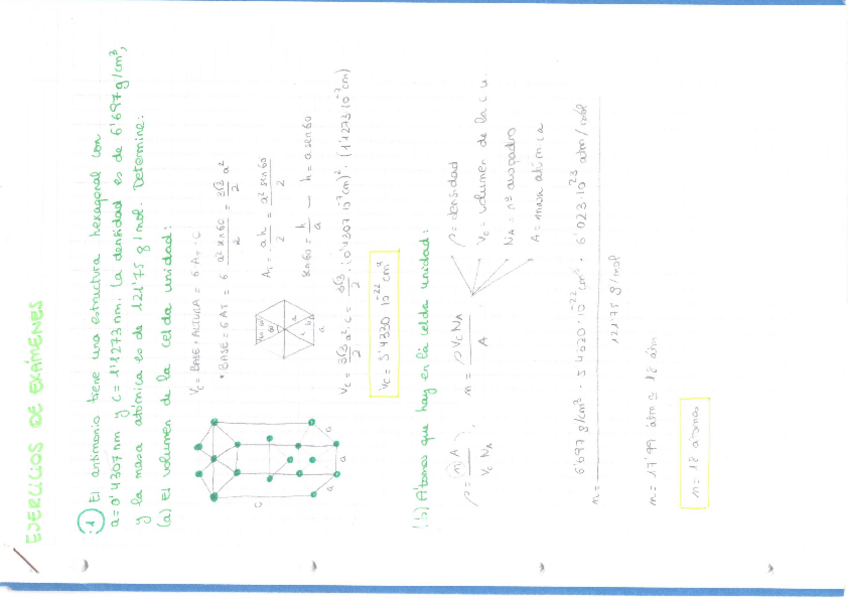 EJERCICIOS DE EXÁMENES
1) El antimonio tiene una estructura hexagonal con
a=0'4307 nm y c=1'1273 nm. La densidad es de 6'697 g/cm³,
y la masa atómica es de 121'75 g/mol. Determine:
(a) El volumen de la celda unidad:
Vc = BASE · ALTURA = 6 AT · C
• BASE = 6 AT = 6 a² sen60 / 2 = 3√3 / 2 a²
AT = ah / 2 = a² sen60 / 2
sen60 = h / a → h = a sen60
C
a
a
a
h
a
Vc = 3√3 / 2 a² · c = 3√3 / 2 · (0'4307 10⁻⁷ cm)² · (1'1273 10⁻⁷ cm)
(b) Átomos que hay en la celda unidad:
ρ = (n) A / Vc NA ;
n = ρ Vc NA / A
ρ = densidad
Vc = volumen de la c u.
NA = nº avogadro
A = masa atómica
121'75 g/mol
n = 17'99 átm ≃ 18 átm
n = 18 átomos